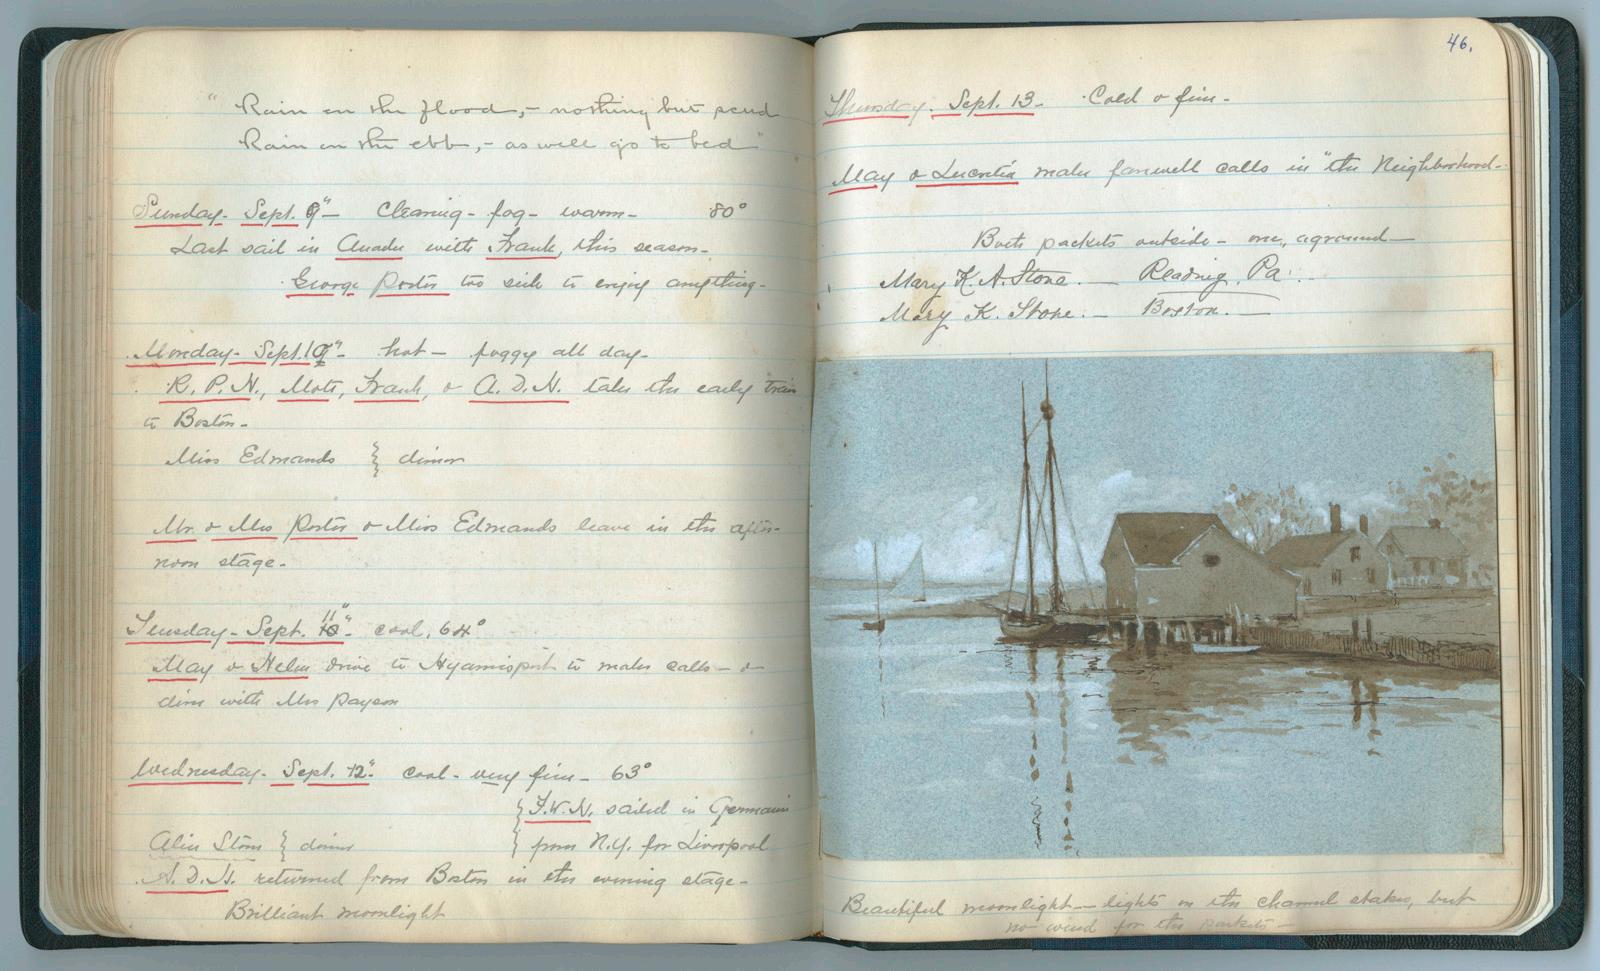 " Rain on the flood, - nothing but scud
Rain on the ebb, - as well go to bed "
Sunday - Sept. 9" - Clearing - fog - warm - 80°
Last sail in with Frank, this season -
George Porter too sick to enjoy anything -
Monday - Sept. 10" - hot - foggy all day -
R. P. H., Mots, Frank, & A. D. H. take the early train
to Boston -
Miss Edmands } dinner
Mr. & Mrs Porter & Miss Edmands leave in the after-
noon stage -
Tuesday - Sept. 11" - cool, 64°
May & Helen drive to Hyannisport to make calls - &
dine with Mrs Payson
Wednesday - Sept. 12" - cool - very fine - 63°
{ F. W. H. sailed in Germanic
Alice Stone } dinner { from N.Y. for Liverpool
A. D. H. returned from Boston in the evening stage -
Brilliant moonlight
46.
Thursday - Sept. 13 - Cold & fine -
May & Lucretia make farewell calls in "the Neighborhood -
Both packets outside - one, aground -
Mary K. A. Stone. — Reading, Pa. -
Mary K. Stone. — Boston. —
Beautiful moonlight — lights on the channel stakes, but
no wind for the packets —